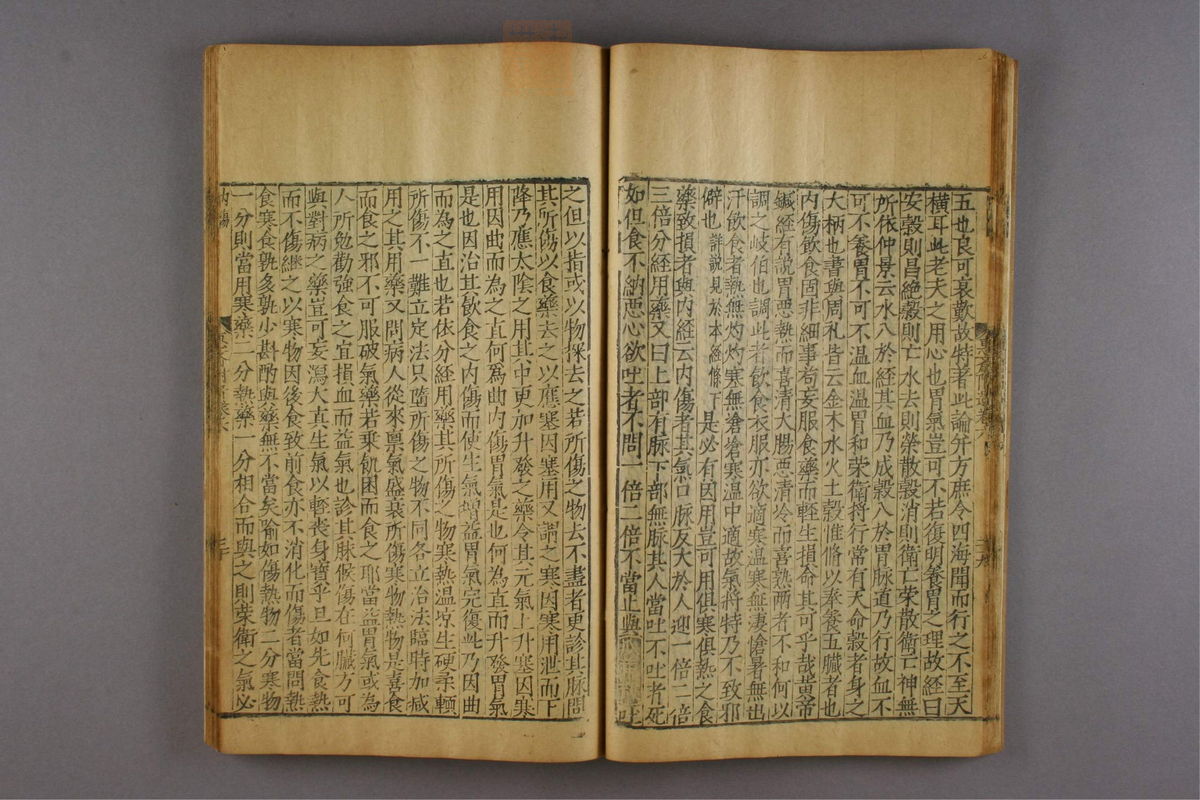 五也良可哀歎故特著此論并方庶令四海聞而行之不至夭
橫耳此老夫之用心也胃氣豈可不若復明養胃之理故經曰
安穀則昌絕穀則亡水去則榮散穀消則衛亡榮散衛亡神無
所依仲景云水入於經其血乃成穀入於胃脉道乃行故血不
可不養胃不可不溫血溫胃和榮衛將行常有天命穀者身之
大柄也書與周禮皆云金木水火土穀惟脩以奉養五臟者也
內傷飲食固非細事苟妄服食藥而輕生損命其可乎哉黃帝
鍼經有說胃惡熱而喜清大腸惡清冷而喜熱兩者不和何以
調之岐伯曰調此者飲食衣服亦欲適寒溫寒無凄愴暑無出
汗飲食者熱無灼灼寒無滄滄寒溫中適故氣將特乃不致邪
僻也詳說見於本經條下是必有因用豈可用俱寒俱熱之食
藥致損者與內經云內傷者其氣口脉反大於人迎一倍二倍
三倍分經用藥又曰上部有脉下部無脉其人當吐不吐者死
如但食不納惡心欲吐者不問一倍二倍不當正與
之但以指或以物探去之若所傷之物去不盡者更診其脉問
其所傷以食藥去之以應塞因塞用又謂之寒因寒用泄而下
降乃應太陰之用其中更加升發之藥令其元氣上升塞因寒
用因曲而為之直何為曲內傷胃氣是也何為直而升發胃氣
是也因治其飲食之內傷而使生氣增益胃氣完復此乃因曲
而為之直也若依分經用藥其所傷之物寒熱溫涼生硬柔輭
所傷不一難立定法只隨所傷之物不同各立治法臨時加減
用之其用藥又問病人從來稟氣盛衰所傷寒物熱物是喜食
而食之邪不可服破氣藥若乘飢困而食之耶當益胃氣或為
人所勉勸強食之宜損血而益氣也診其脉候傷在何臟方可
與對病之藥豈可妄瀉天真生氣以輕喪身寶乎且如先食熱
而不傷繼之以寒物因後食致前食亦不消化而傷者當問熱
食寒食孰多孰少斟酌與藥無不當矣喻如傷熱物二分寒物
一分則當用寒藥二分熱藥一分相合而與之則榮衛之氣必
內傷